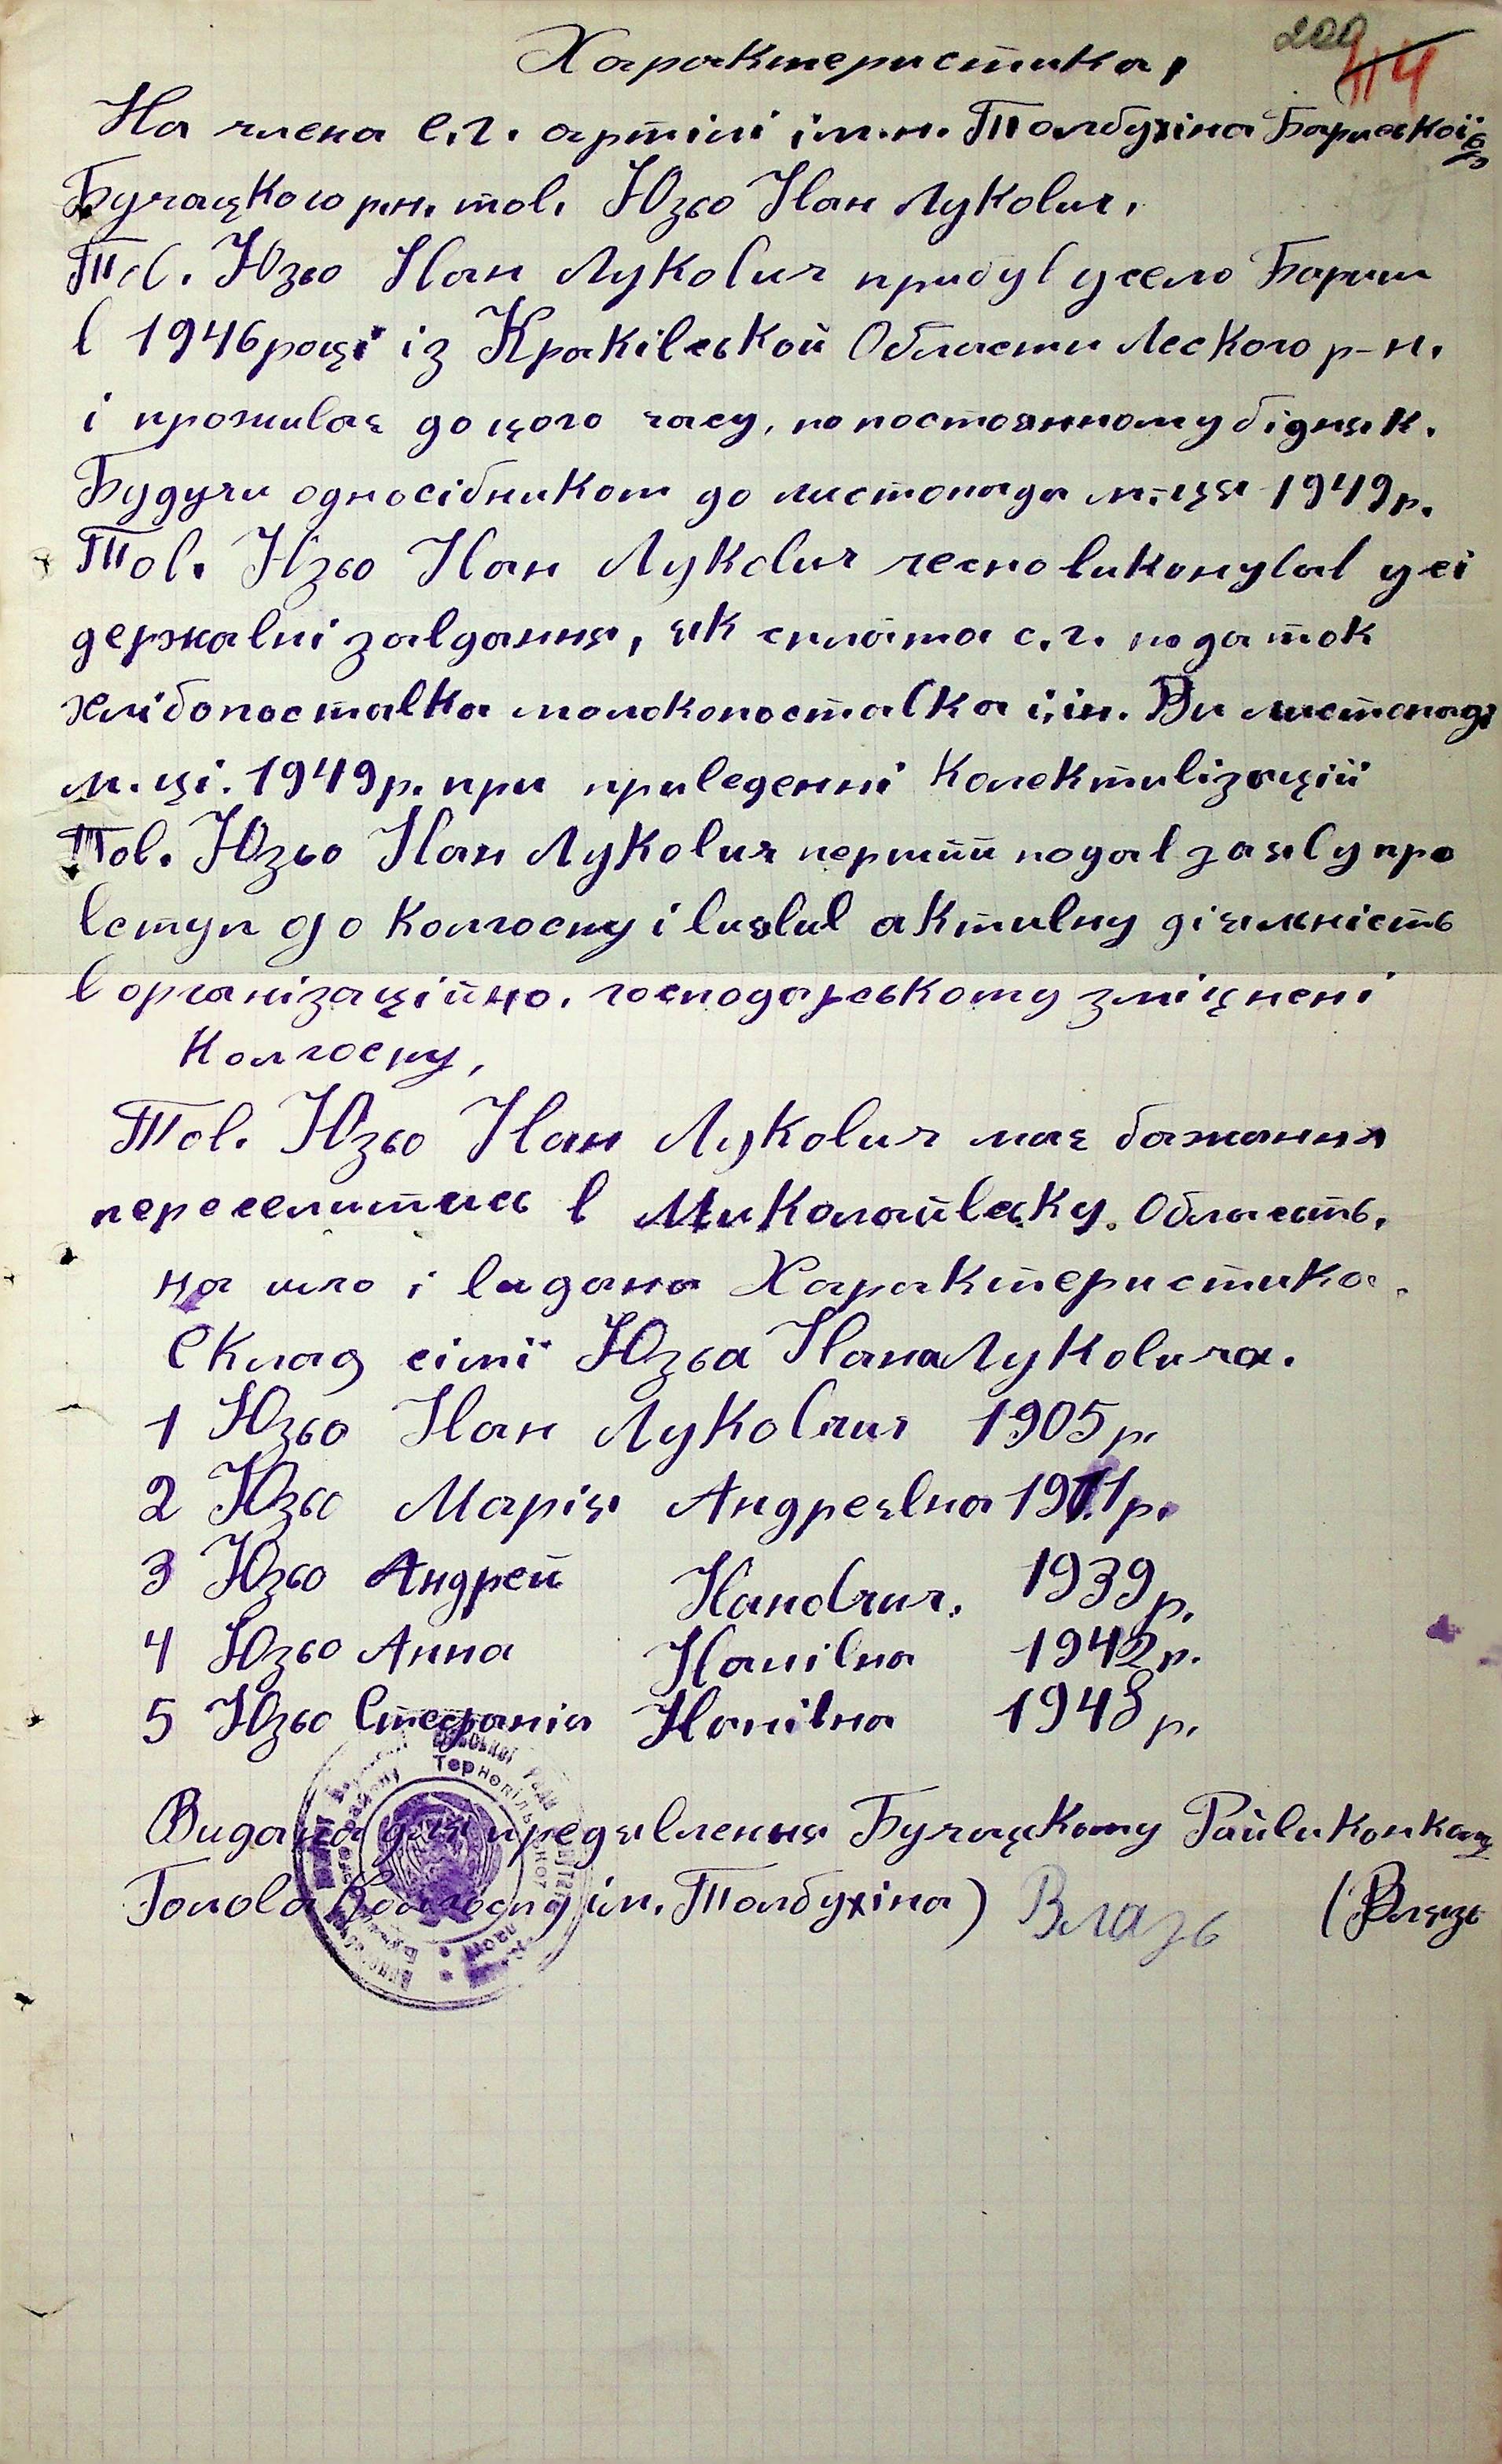 200
414
Характеристика,
На члена с.г. артілі ім.н. Толбухіна Бариської
Бучацкого р.н. тов. Юзьо Іван Лукович.
Тов. Юзьо Іван Лукович прибув у село Бариш
в 1946 році із Краківськой Области Леского р-н.
і проживає до цого часу, по постоянному бідняк.
Будучи односібником до листопада м-ця 1949 р.
Тов. Юзьо Іван Лукович чесно виконував усі
державні завдання, як сплата с.г. податок
хлібопоставка молокопоставка і ін. Ви листопаді
м.ці. 1949 р. при приведенні Колективізацій
Тов. Юзьо Іван Лукович первий подав заяву про
вступ до Колгоспу і виявив активну діяльність
в організаційно. господарському зміцнені
Колгоспу,
Тов. Юзьо Іван Лукович має бажання
переселитись в Миколайвську Область,
на що і видана Характеристика.
Склад сімї Юзьа Івана Луковича.
1 Юзьо Іван Лукович 1905 р.
2 Юзьо Марія Андреєвна 1911 р.
3 Юзьо Андрей Іванович. 1939 р.
4 Юзьо Анна Іванівна 1942 р.
5 Юзьо Стефанія Іванівна 1948 р.
Видана для предявленя Бучацкому Райвиконкому
Голова Колгоспу ім. Толбухіна) Влязь (Влязь